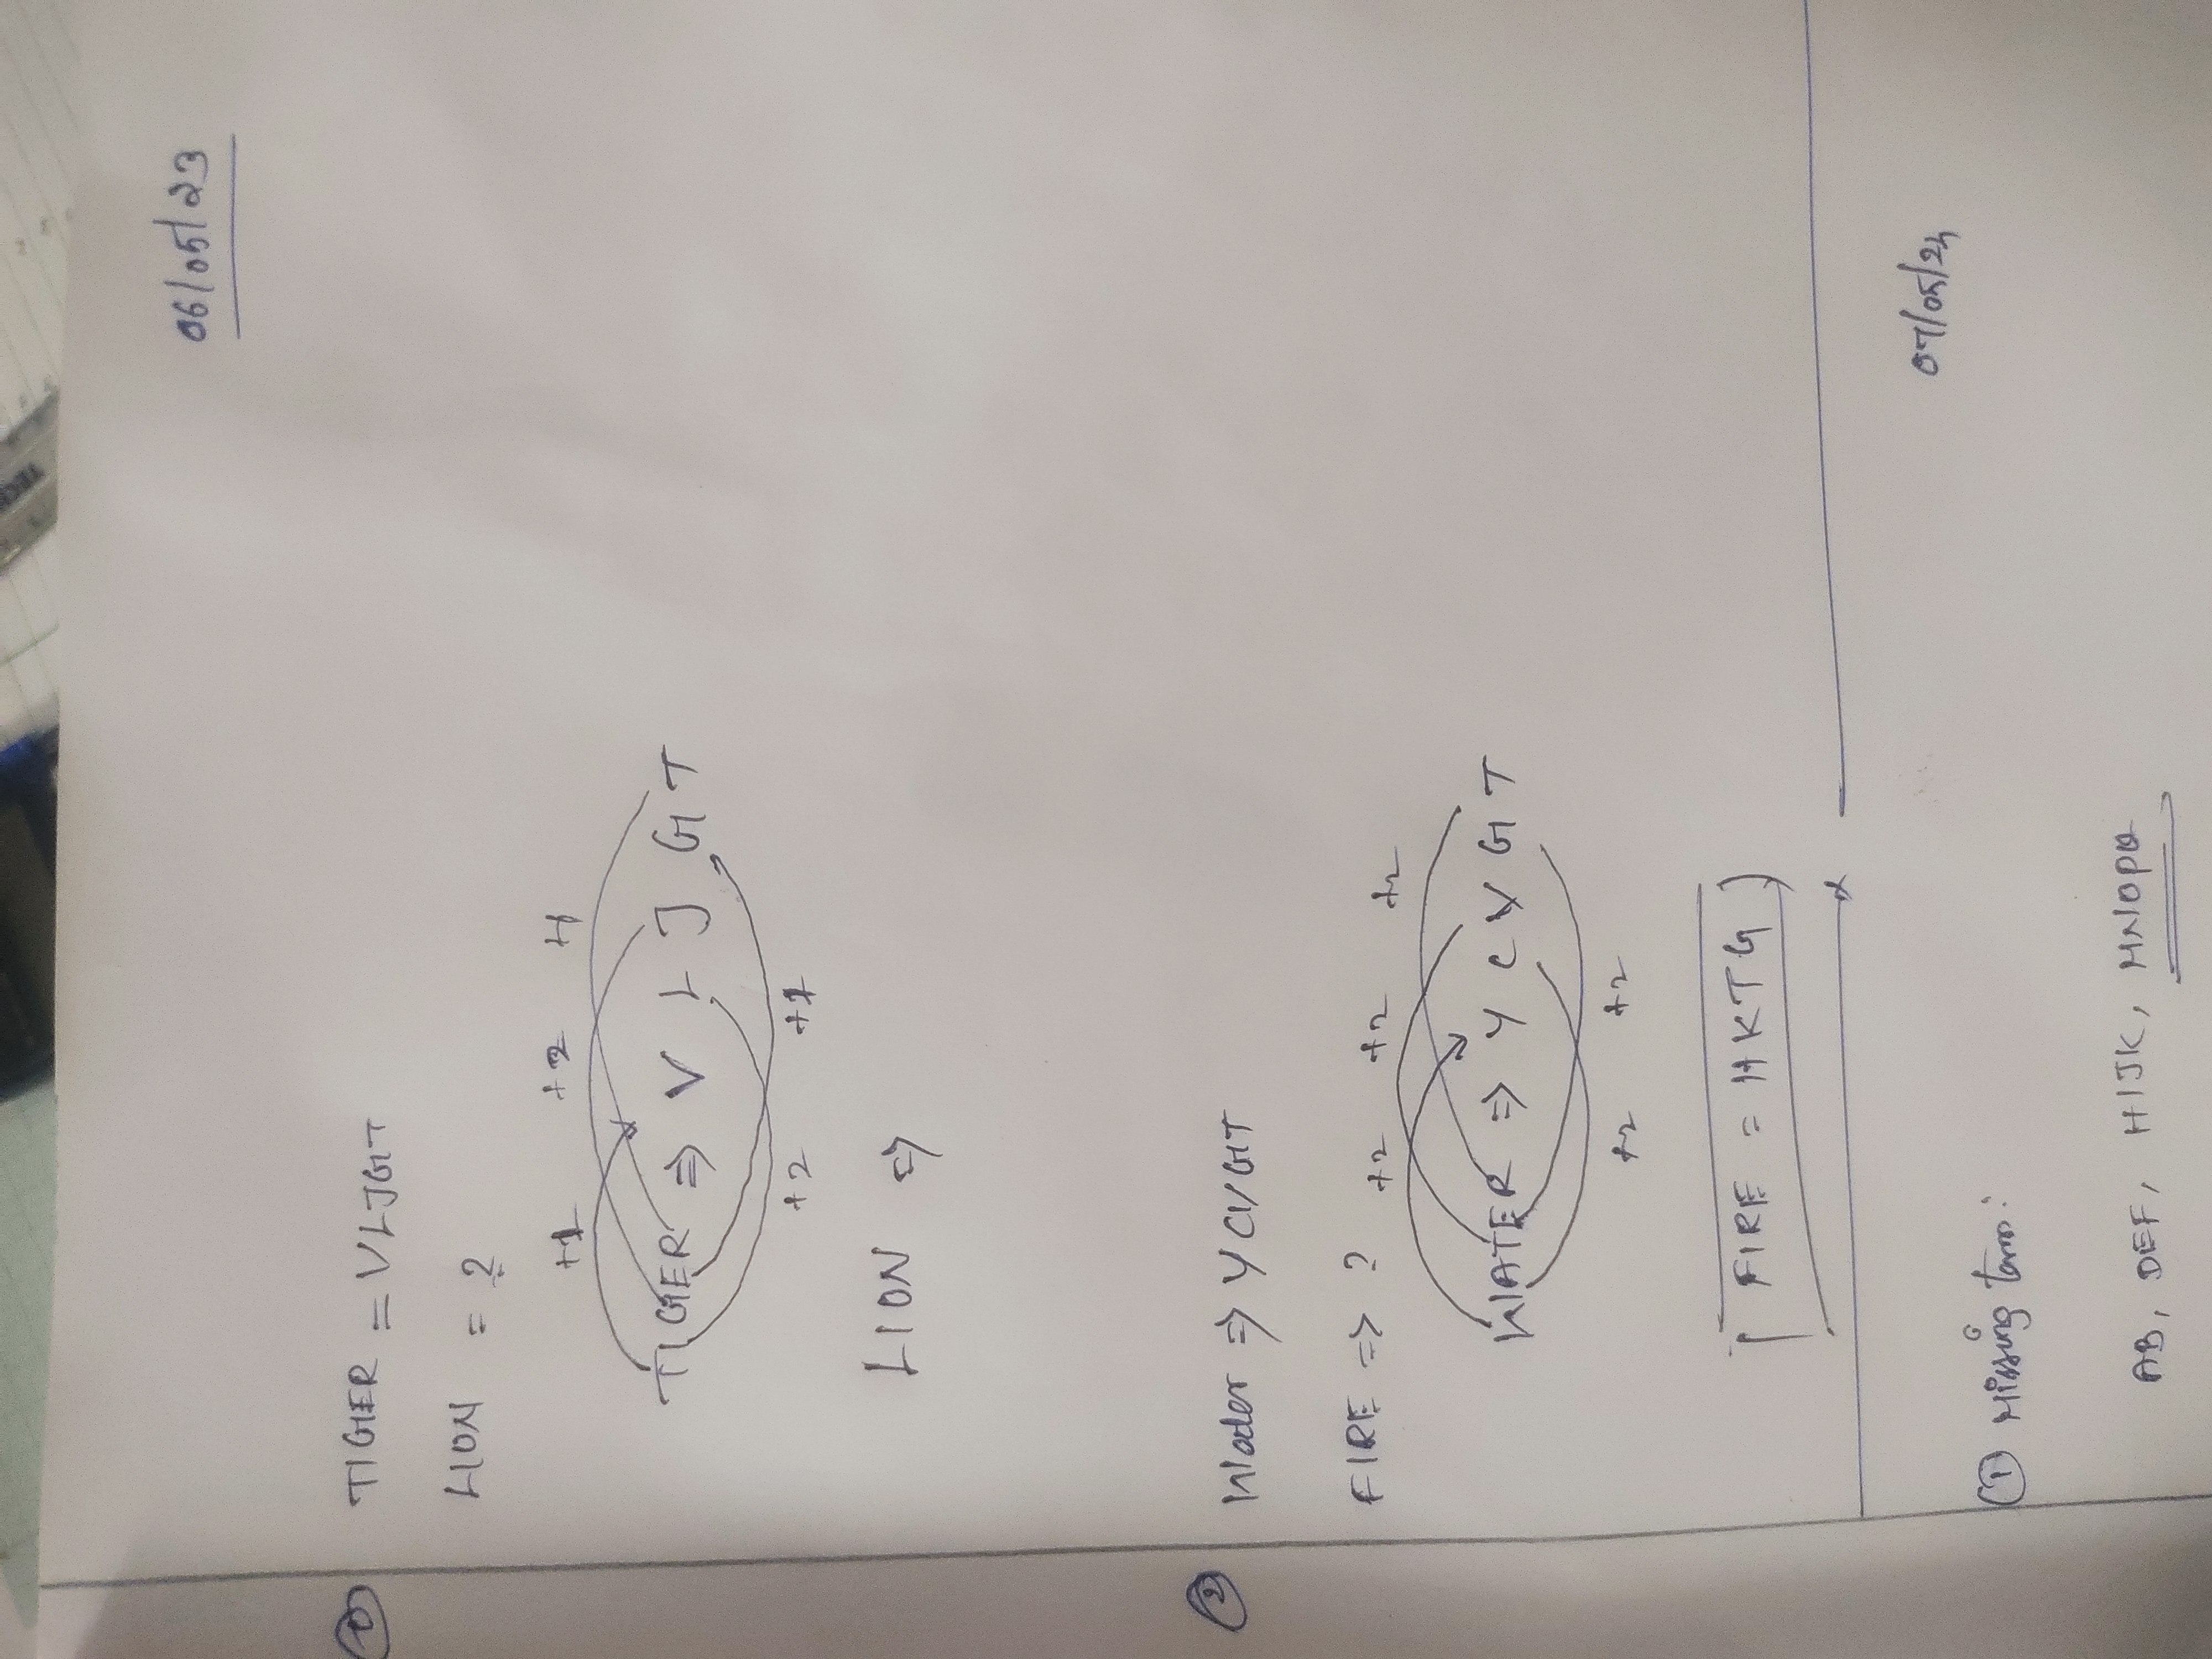 06/05/23
① TIGER = VLJGT
LION = ?
+1 +2 +1
TIGER ⇒ V L J G T
+2 +1
LION ⇒
② Water ⇒ YCVGT
FIRE ⇒ ?
+2 +2 +2
WATER ⇒ Y C V G T
+2 +2
FIRE = HKTG
① Missing term:
AB, DEF, HIJK, MNOPQ